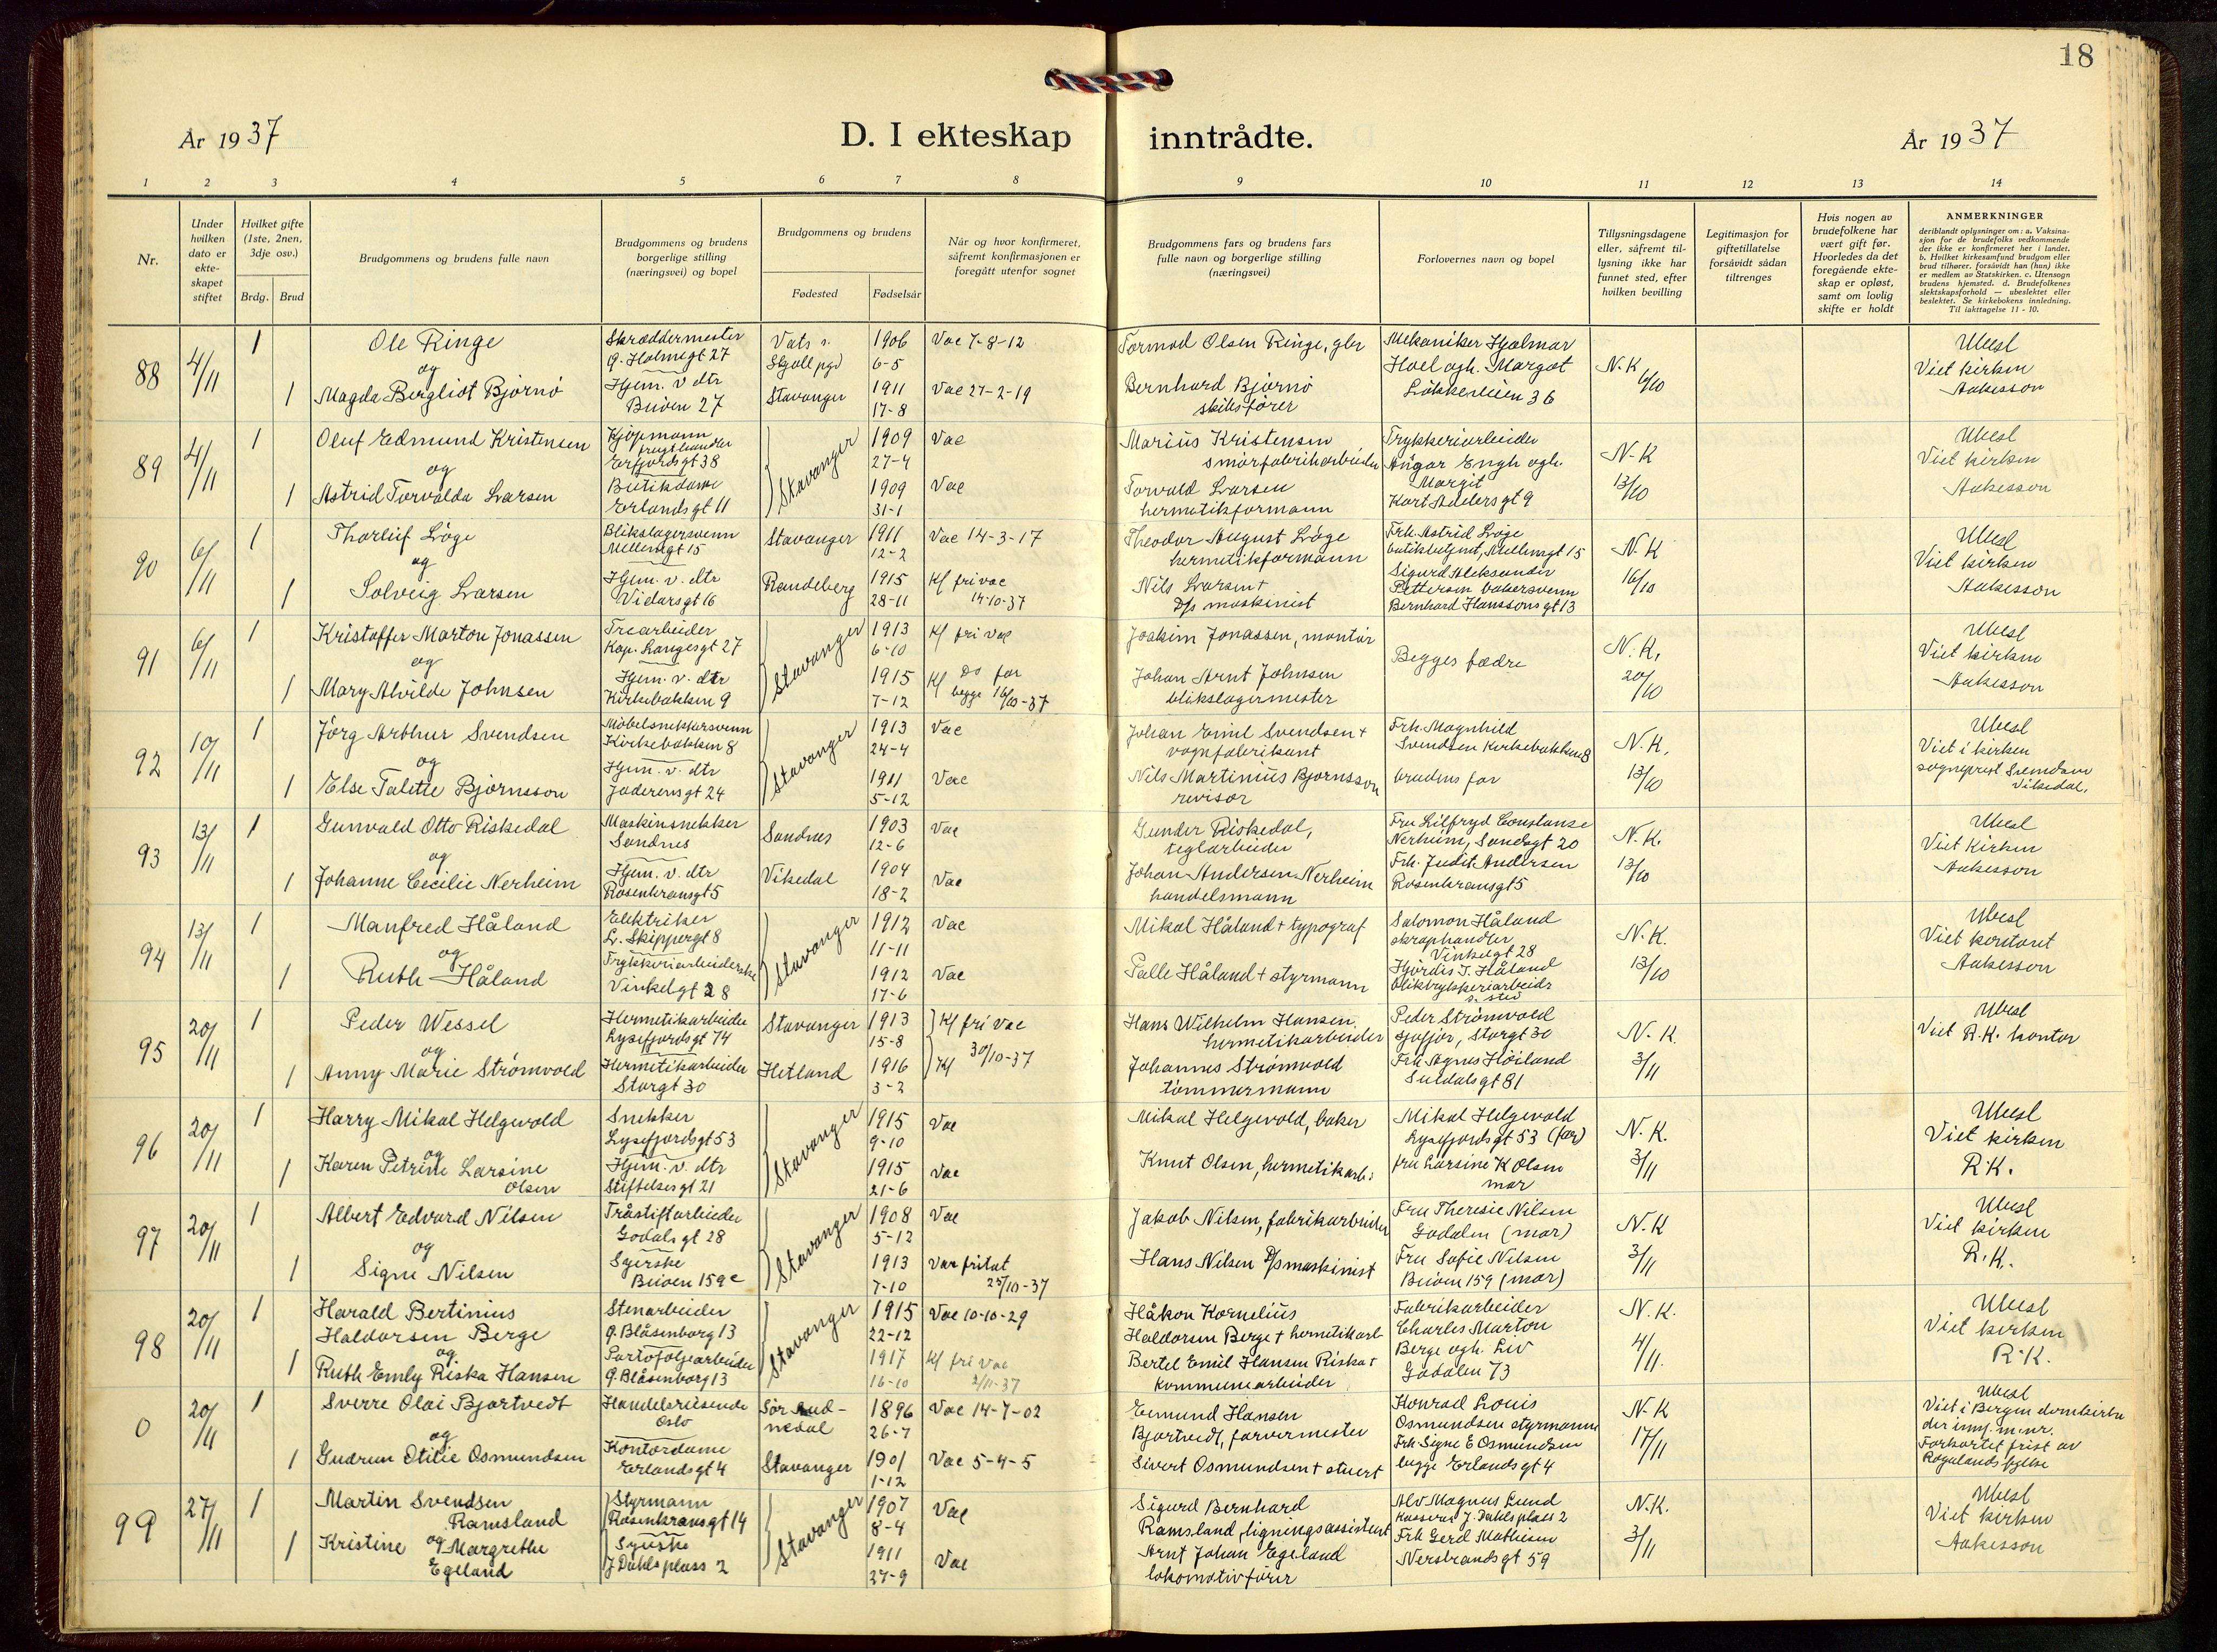 18
År 1937
D. I ekteskap inntrådte.
År 1937
1 2 3 4 5 6 7 8 9 10 11 12 13 14
Nr.
Under hvilken dato er ekteskapet stiftet
Hvilket gifte (1ste, 2nen, 3dje osv.)
Brdg. Brud
Brudgommens og brudens fulle navn
Brudgommens og brudens borgerlige stilling (næringsvei) og bopel
Brudgommens og brudens
Fødested Fødselsår
Når og hvor konfirmeret, såfremt konfirmasjonen er foregått utenfor sognet
Brudgommens fars og brudens fars fulle navn og borgerlige stilling (næringsvei)
Forlovernes navn og bopel
Tillysningsdagene eller, såfremt tillysning ikke har funnet sted, efter hvilken bevilling
Legitimasjon for giftetillatelse forsåvidt sådan tiltrenges
Hvis nogen av brudefolkene har vært gift før. Hvorledes da det foregående ekteskap er opløst, samt om lovlig skifte er holdt
ANMERKNINGER
deriblandt oplysninger om: a. Vaksinasjon for de brudefolks vedkommende der ikke er konfirmeret her i landet. b. Hvilket kirkesamfund brudgom eller brud tilhører, forsåvidt han (hun) ikke er medlem av Statskirken. c. Utensogn brudens hjemsted. d. Brudefolkenes slektskapsforhold — ubeslektet eller beslektet. Se kirkebokens innledning. Til iakttagelse 11 - 10.
88 4/11 1 Ole Ringe Skræddermester G. Holmegt 27 Vats s. Skjoll pgd 1906 6-5 Vac 7-8-12 Tormod Olsen Ringe, gbr Mekaniker Hjalmar Hoel ogh. Margot Løkkeveien 36 N.K Ubesl Viet kirken Aakesson
og
1 Magda Bergliot Bjørnø Hjem. v dtr Buøen 27 Stavanger 1911 17-8 Vac 27-2-19 Bernhard Bjørnø skibsfører
89 4/11 1 Oluf Edmund Kristensen Kjøpmann frugthandler Erfjordsgt 38 Stavanger 1909 27-4 Vac Marius Kristensen smørfabrikarbeider Trykkeriarbeider Engh ogh. Margit Kort Adelersgt 9 N-K 13/10 Ubesl Viet kirken Aakesson
og
1 Astrid Torvalda Larsen Butikdame Erlandsgt 11 1909 31-1 Vac Torvald Larsen hermetikformann
90 6/11 1 Thorleif Løge Blikslagersvenn Møllengt 15 Stavanger 1911 12-2 Vac 14-3-17 Theodor August Løge hermetikformann Frk. Astrid Løge butikbetjent, Møllengt 15 N.K 16/10 Ubesl Viet kirken Aakesson
og
1 Solveig Larsen Hjem. v. dtr Vidarsgt 16 Randeberg 1915 28-11 Kf fri vac 14-10-37 Nils Larsen + D/s maskinist Sigurd Aleksander Pettersen bakersvenn Bernhard Hanssonsgt 13
91 6/11 1 Kristoffer Marton Jonassen Trearbeider Kap. Langesgt 27 Stavanger 1913 6-10 Kf fri vac Joakim Jonassen, montør Begges fædre N.K. 20/10 Ubesl Viet kirken Aakesson
og
1 Mary Alvilde Johnsen Hjem. v. dtr Kirkebakken 9 1915 7-12 Kf Do for begge 16/10-37 Johan Arnt Johnsen blikslagermester
92 10/11 1 Jørg Arthur Svendsen Møbelsnekkersvenn Kirkebakken 8 Stavanger 1913 24-4 Vac Johan Emil Svendsen + vognfabrikant Frk. Magnhild Svendsen Kirkebakken 8 N.K. 13/10 Ubesl Viet i kirken sogneprest Vikedal.
og
1 Else Talette Bjørnsson Hjem. v. dtr Jaderensgt 24 1911 5-12 Vac Nils Martinius Bjørnsson revisor brudens far
93 13/11 1 Gunvald Otto Riskedal Maskinsnekker Sandnes Sandnes 1903 12-6 Vac Gunder Riskedal, teglarbeider Fru Lilfryd Constanse Nerheim, Sandsgt 20 N.K. 13/10 Ubesl Viet kirken Aakesson
og
1 Johanne Cecilie Nerheim Hjem. v. dtr Rosenkransgt 5 Vikedal 1904 18-2 Vac Johan Andersen Nerheim handelsmann Frk. Judit Andersen Rosenkransgt 5
94 13/11 1 Manfred Håland Elektriker L. Skippergt 8 Stavanger 1912 11-11 Vac Mikal Håland + typograf Salomon Håland skraphandler Vinkelgt 28 N.K. 13/10 Ubesl Viet Aakesson
og
1 Ruth Håland Trykkeriarbeiderske Vinkelgt 28 1912 17-6 Vac Palle Håland + styrmann Hjørdis T. Håland bliktrykkeriarbeidr s. sted
95 20/11 1 Peder Wessel Hermetikarbeider Lysefjordsgt 74 Stavanger 1913 15-8 Kf fri vac Hans Wilhelm Hansen hermetikarbeider Peder Strømvold sjåfør, Storgt 30 N.K. 3/11 Ubesl Viet R.K. kontor
og
1 Anny Marie Strømvold Hermetikarbeider Storgt 30 Hetland 1916 3-2 Kf 30/10-37 Johannes Strømvold tømmermann Frk Agnes Høiland Suldalsgt 81
96 20/11 1 Harry Mikal Helgevold Snekker Lysefjordsgt 53 Stavanger 1915 9-10 Vac Mikal Helgevold, baker Mikal Helgevold Lysefjordsgt 53 (far) N.K. 3/11 Ubesl Viet kirken R.K.
og
1 Karen Petrine Larsine Olsen Hjem. v. dtr Stiftelsesgt 21 1915 21-6 Vac Knut Olsen, hermetikarb. fru Larsine K Olsen mor
97 20/11 1 Albert Edvard Nilsen Tråstiftarbeider Godalsgt 28 Stavanger 1908 5-12 Vac Jakob Nilsen, fabrikarbeider Fru Theresie Nilsen Godalen (mor) N.K 3/11 Ubesl Viet kirken R.K.
og
1 Signe Nilsen Syerske Buøen 159c 1913 7-10 Vac fritat 25/10-37 Hans Nilsen D/s maskinist Fru Sofie Nilsen Buøen 159 (mor)
98 20/11 1 Harald Bertinius Haldorsen Berge Stenarbeider G. Blåsenborg 13 Stavanger 1915 22-12 Vac 10-10-29 Håkon Kornelius Haldorsen Berge + hermetikarb Fabrikarbeider Charles Marton Berge ogh. Liv Godalen 73 N.K. 4/11. Ubesl Viet kirken R.K.
og
1 Ruth Emly Riska Hansen Portofoljearbeider G. Blåsenborg 13 1917 16-10 Kf fri vac 2/11-37 Bertel Emil Hansen Riska + kommunearbeider
0 20/11 1 Sverre Olai Bjartvedt Handelsreisende Oslo Sør Aud-nedal 1896 26-7 Vac 14-7-02 Edmund Hansen Bjartvedt, farvermester Konrad Louis Osmundsen styrmann N.K 17/11 Ubesl Viet i Bergen domkirke der innf. m. nr. Forkortet frist av Rogalands fylke
og
1 Gudrun Otilie Osmundsen Kontordame Erlandsgt 4 Stavanger 1901 1-12 Vac 5-4-5 Sivert Osmundsen + stuert Frk Signe E Osmundsen begge Erlandsgt 4
99 27/11 1 Martin Svendsen Ramsland Styrmann Rosenkransgt 14 Stavanger 1907 8-4 Vac Sigurd Bernhard Ramsland, ligningsassistent Alv Magnus Lund Kasserer J. Dahls plass 2 N.K. 3/11 Ubesl Viet kirken Aakesson
og
1 Kristine Margrethe Egeland Syerske J Dahls plass 2 1911 27-9 Vac Arnt Johan Egeland lokomotivfører Frk Gerd Mathisen Nersbrandsgt 59